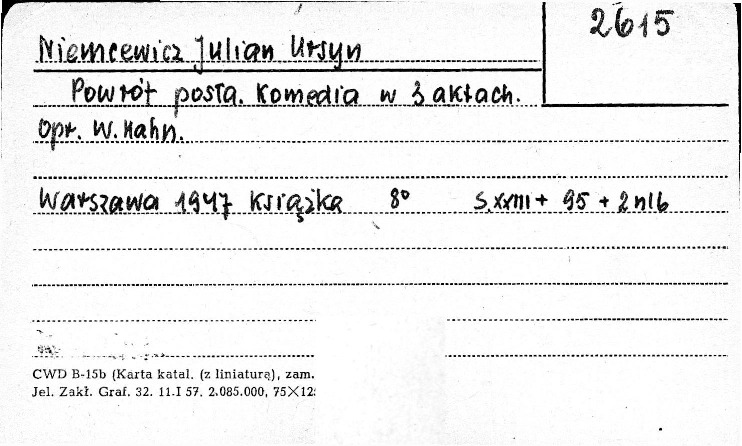 2615
Niemcewicz Julian Ursyn
Powrót posła. Komedia w 3 aktach.
Opr. W. Hahn.
Warszawa 1947 Książka 8° s. XXIII + 95 + 2 nlb
CWD B-15b (Karta katal. (z liniaturą), zam.
Jel. Zakł. Graf. 32. 11.I 57. 2.085.000, 75×12